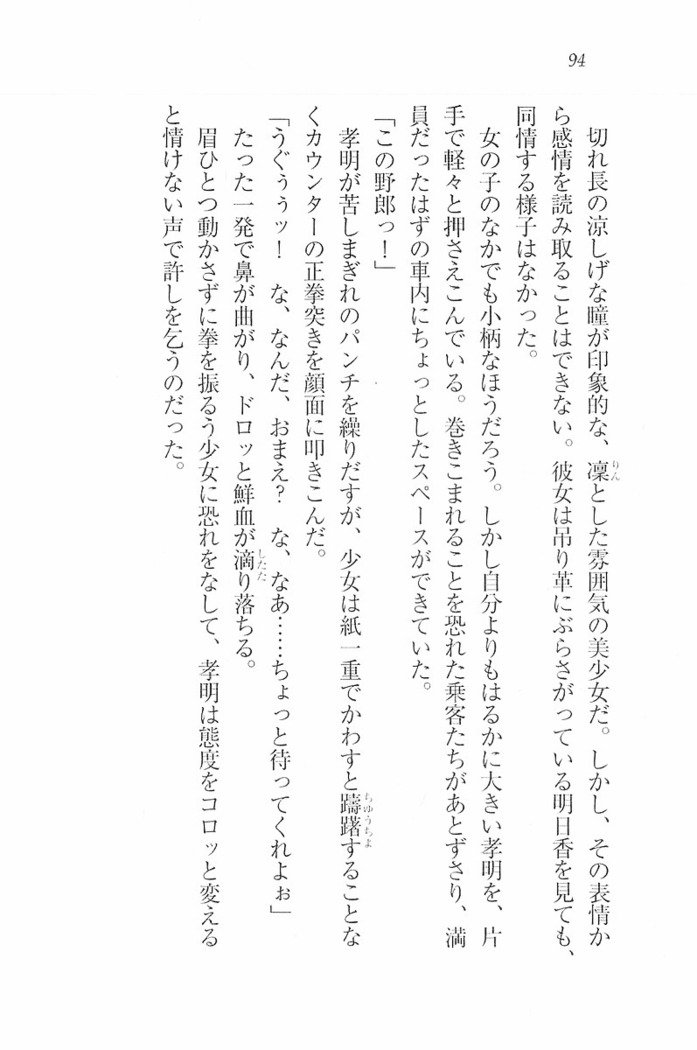 94
切れ長の涼しげな瞳が印象的な、凜とした雰囲気の美少女だ。しかし、その表情か
ら感情を読み取ることはできない。彼女は吊り革にぶらさがっている明日香を見ても、
同情する様子はなかった。
女の子のなかでも小柄なほうだろう。しかし自分よりもはるかに大きい孝明を、片
手で軽々と押さえこんでいる。巻きこまれることを恐れた乗客たちがあとずさり、満
員だったはずの車内にちょっとしたスペースができていた。
「この野郎っ！」
孝明が苦しまぎれのパンチを繰りだすが、少女は紙一重でかわすと躊躇することな
くカウンターの正拳突きを顔面に叩きこんだ。
「うぐぅぅッ！　な、なんだ、おまえ？　な、なあ……ちょっと待ってくれよぉ」
たった一発で鼻が曲がり、ドロッと鮮血が滴り落ちる。
眉ひとつ動かさずに拳を振るう少女に恐れをなして、孝明は態度をコロッと変える
と情けない声で許しを乞うのだった。